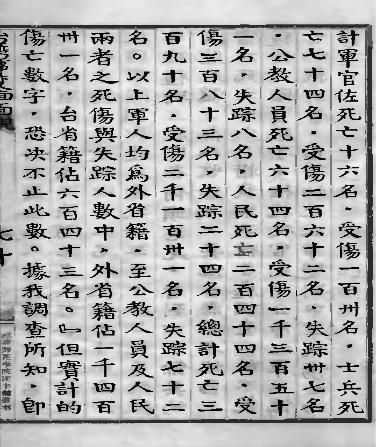 計軍官佐死亡十六名，受傷一百卅名，士兵死
亡七十四名，受傷二百六十二名，失踪卅七名
，公教人員死亡六十四名，受傷一千三百五十
一名，失踪八名，人民死亡二百四十四名，受
傷三百八十三名，失踪二十四名，總計死亡三
百九十名，受傷二千一百卅一名，失踪七十二
名。以上軍人均爲外省籍，至公教人員及人民
兩者之死傷與失踪人數中，外省籍佔一千四百
卅一名，台省籍佔六百四十三名。』但實計的
傷亡數字，恐决不止此數。據我調查所知，卽
七十